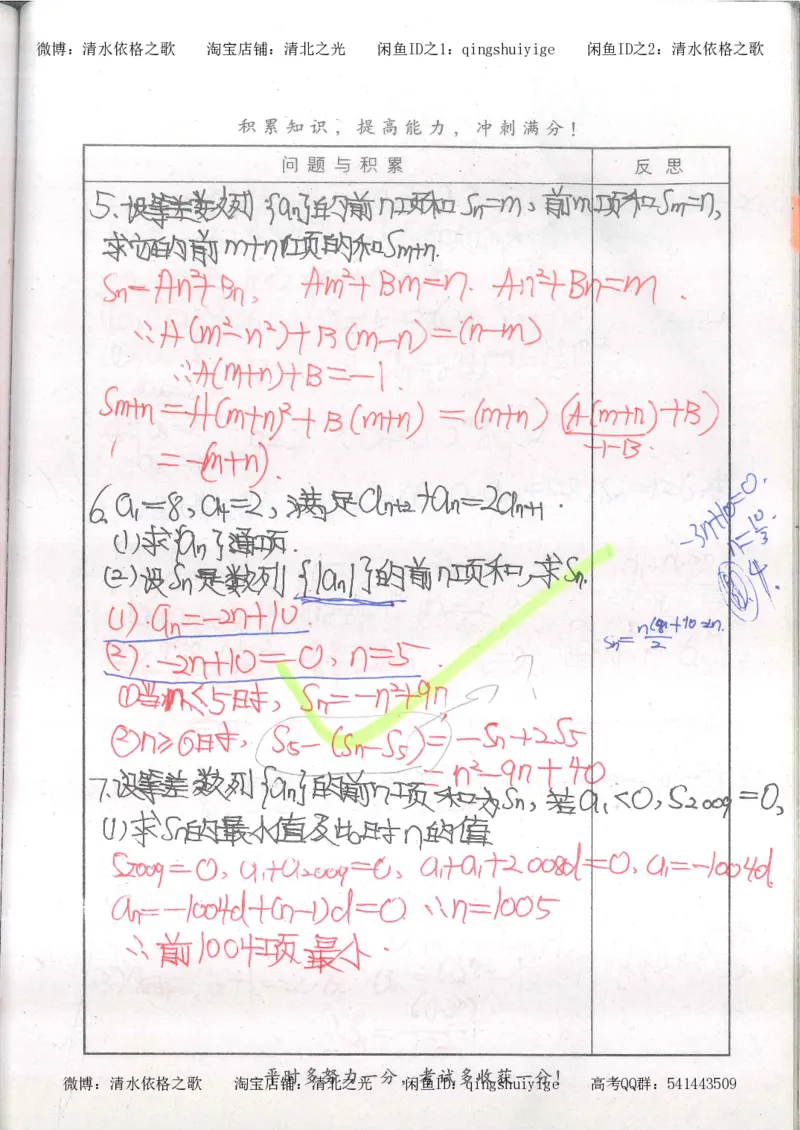 微博：清水依格之歌 淘宝店铺：清北之光 闲鱼ID之1：qingshuiyige 闲鱼ID之2：清水依格之歌
积累知识，提高能力，冲刺满分！
问题与积累 反思
5.设等差数列{an}的前n项和Sn=m，前m项和Sm=n，
求它的前m+n项的和Sm+n.
Sn=An²+Bn， Am²+Bm=n. An²+Bn=m.
∴A(m²-n²)+B(m-n)=(n-m)
∴A(m+n)+B=-1.
Sm+n=A(m+n)²+B(m+n)=(m+n)(A(m+n)+B)
-1-B.
=-(m+n).
6. a1=8, a4=2, 满足an+2+an=2an+1.
-3n+10=0.
n=10/3
4.
(1)求{an}通项.
(2)设Sn是数列{|an|}的前n项和，求Sn.
(1).an=-2n+10
Sn=n(8+10-2n)/2
(2).-2n+10=0, n=5.
①当n≤5时, Sn=-n²+9n
?
②n≥6时, S5-(Sn-S5)=-Sn+2S5
=n²-9n+40
7.设等差数列{an}的前n项和为Sn，若a1<0, S2009=0,
(1)求Sn的最小值及此时n的值
S2009=0, a1+a2009=0, a1+a1+2008d=0, a1=-1004d.
an=-1004d+(n-1)d=0 ∴n=1005
∴前1004项最小.
平时多努力一分，考试多收获一分！
微博：清水依格之歌 淘宝店铺：清北之光 闲鱼ID：qingshuiyige 高考QQ群：541443509